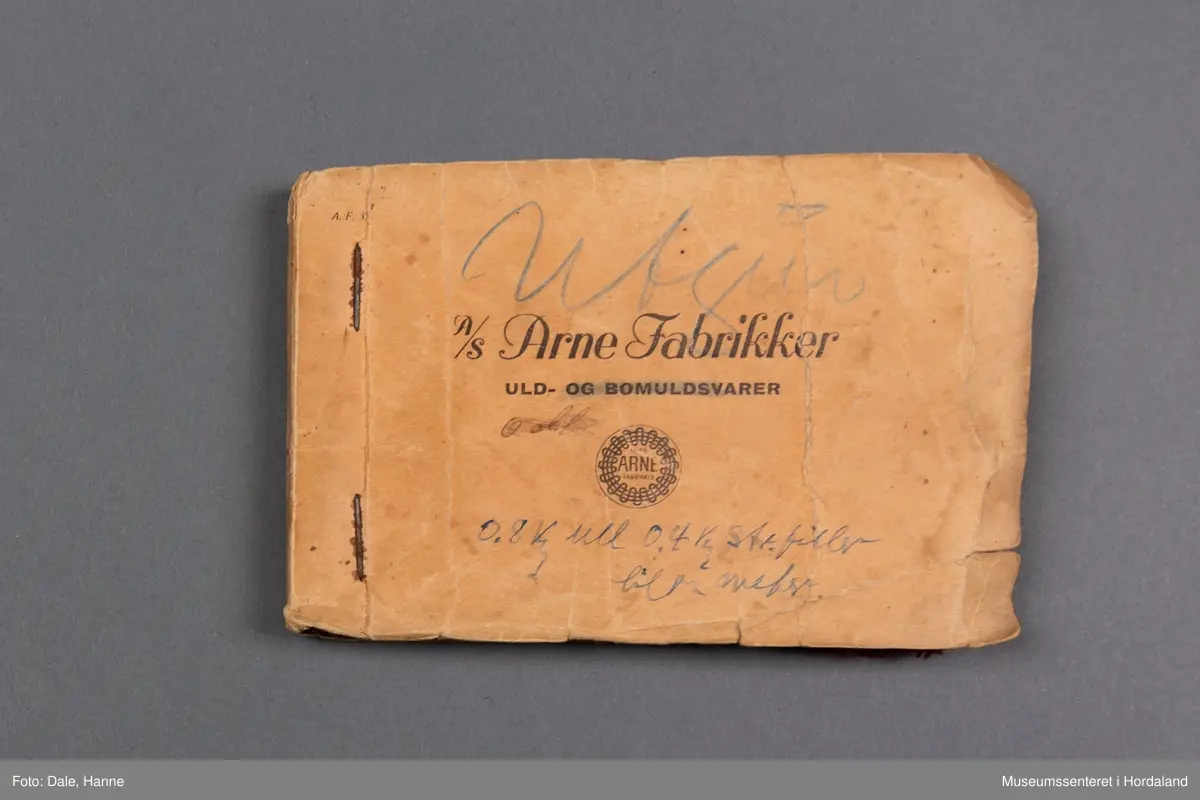 A. F. 3
Utgår
A/S Arne Fabrikker
ULD- OG BOMULDSVARER
ARNE
FABRIKKER
0.8 Kg ull 0.4 Kg str. filler
til
Foto: Dale, Hanne
Museumssenteret i Hordaland